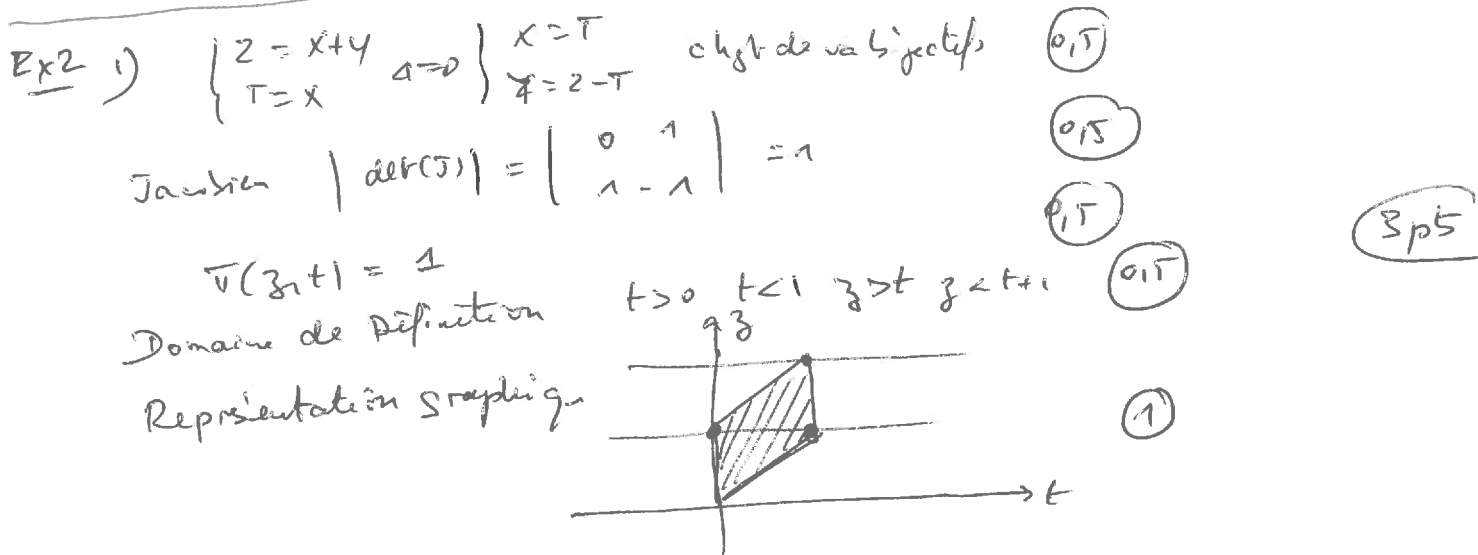 Ex2 1) { Z = X+Y T = X <=> { X = T Y = Z - T chgt de va bijectif 0,5
Jacobien | det(J) | = | 0 1 1 -1 | = 1 0,5
0,5
3pt5
π(z,t) = 1
Domaine de Définition t>0 t<1 z>t z<t+1 0,5
z
Représentation graphique 1
t